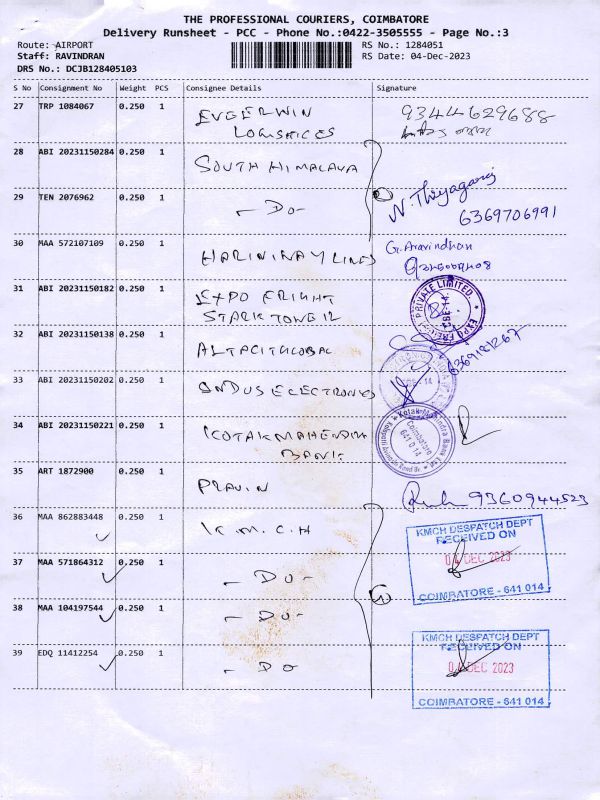 THE PROFESSIONAL COURIERS, COIMBATORE
Delivery Runsheet - PCC - Phone No.:0422-3505555 - Page No.:3
Route: AIRPORT
RS No.: 1284051
Staff: RAVINDRAN
RS Date: 04-Dec-2023
DRS No.: DCJB128405103
S No Consignment No Weight PCS Consignee Details Signature
27 TRP 1084067 0.250 1 EVGERWIN 9344629688
LOGISTICES
28 ABI 20231150284 0.250 1 SOUTH HIMALAYA
29 TEN 2076962 0.250 1 - DO - N. Thiyagaraj
6369706991
30 MAA 572107109 0.250 1 HARINIVAY LINES G. Aravindhan
31 ABI 20231150182 0.250 1 EXPO FRIGHT
STARK TOWER
PRIVATE LIMITED
32 ABI 20231150138 0.250 1 ALTACIT GLOBAL
33 ABI 20231150202 0.250 1 INDUS ELECTRONICS
34 ABI 20231150221 0.250 1 KOTAK MAHENDRA
BANK
Kotak Mahindra Bank Ltd
Coimbatore
641 014
35 ART 1872900 0.250 1 PRAVIN 9360944523
36 MAA 862883448 0.250 1 K.M.C.H
KMCH DESPATCH DEPT
RECEIVED ON
04 DEC 2023
COIMBATORE - 641 014
37 MAA 571864312 0.250 1 - DO -
38 MAA 104197544 0.250 1 - DO -
39 EDQ 11412254 0.250 1 - DO
KMCH DESPATCH DEPT
RECEIVED ON
04 DEC 2023
COIMBATORE - 641 014